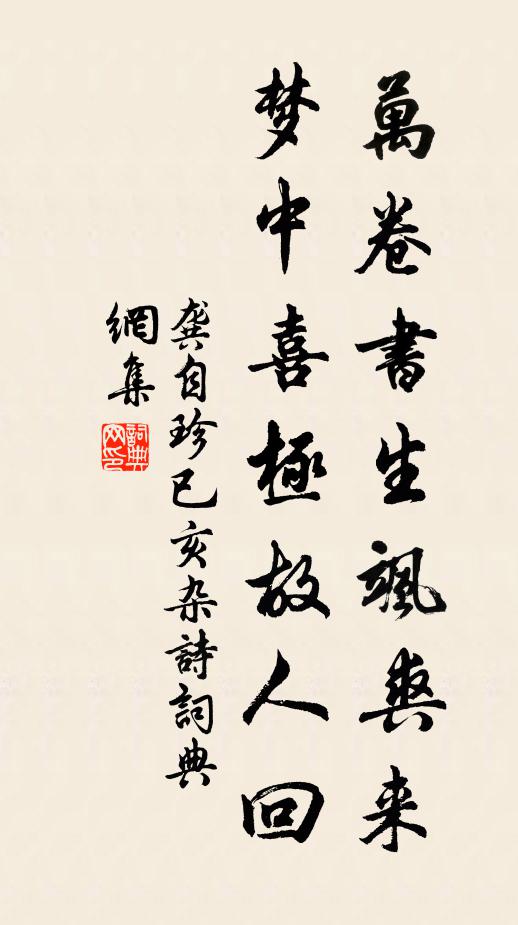 萬卷書生颯爽来
梦中喜極故人回
龔自珍已亥杂詩詞典
網集
詞典
网印